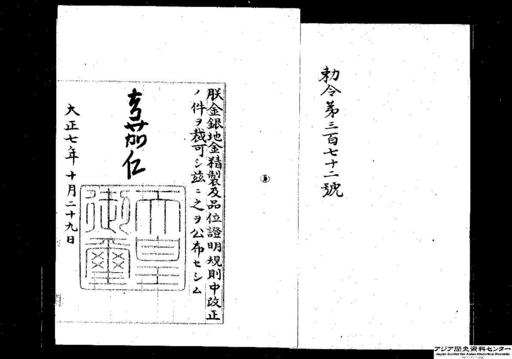 勅令第三百七十二號
朕金銀地金精製及品位證明規則中改正
ノ件ヲ裁可シ茲ニ之ヲ公布セシム
嘉仁
天皇
御璽
大正七年十月二十九日
アジア歴史資料センター
Japan Center for Asian Historical Records